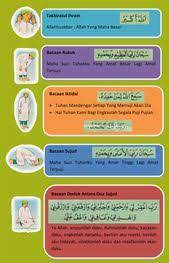 Takbiratul Ihram
اللهُ أَكْبَرُ
Allahhuakbar : Allah Yang Maha Besar
Bacaan Rukuk
سُبْحَانَ رَبِّيَ الْعَظِيْمِ وَبِحَمْدِهِ
Maha Suci Tuhanku Yang Amat Besar Lagi Amat
Terpuji
Bacaan Iktidal
سَمِعَ اللهُ لِمَنْ حَمِدَهُ
Tuhan Mendengar Setiap Yang Memuji Akan Dia
Hai Tuhan Kami Bagi Engkaulah Segala Puji Pujian
Bacaan Sujud
سُبْحَانَ رَبِّيَ الْأَعْلَى وَبِحَمْدِهِ
Maha Suci Tuhanku Yang Amat Tinggi Lagi Amat
Terpuji
Bacaan Duduk Antara Dua Sujud
Ya Allah, ampunilah daku, Rahmatilah daku, kayakan
daku, angkatlah darjatku, berilah aku rezeki, berilah
aku hidayah, sihatkanlah daku dan maafkanlah akan
daku.